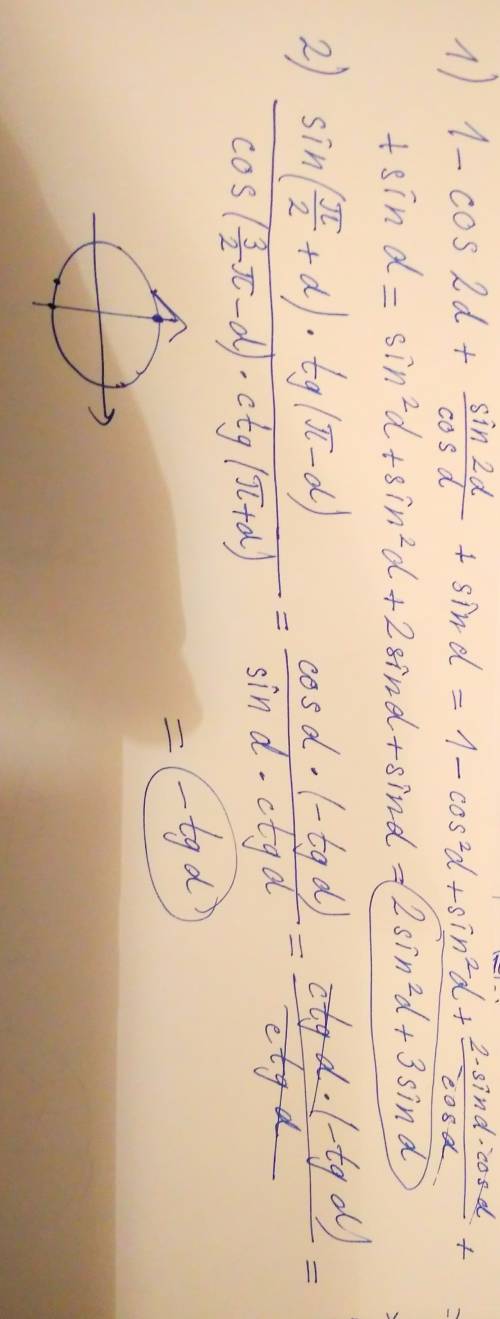 1) 1 - cos 2α + sin 2α / cos α + sin α = 1 - cos²α + sin²α + 2·sinα·cosα / cosα +
+ sin α = sin²α + sin²α + 2sinα + sinα = 2sin²α + 3sinα
2) sin(π/2 + α) · tg(π - α) / cos(3/2 π - α) · ctg(π + α) = cosα · (-tgα) / sinα · ctgα = ctgα · (-tgα) / ctgα =
= -tgα